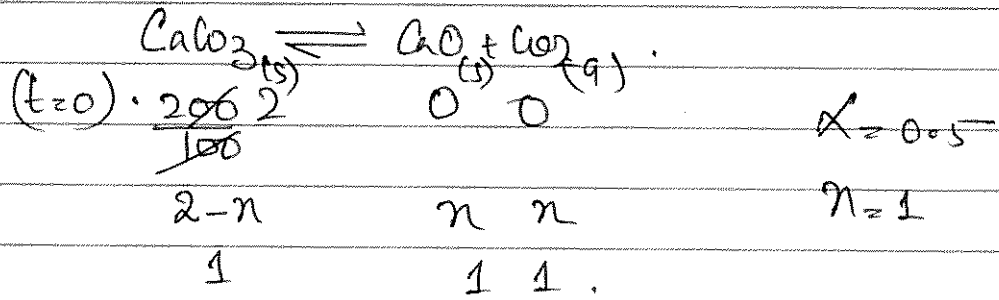 CaCO3(s) ⇌ CaO(s) + CO2(g).
(t=0). 200/100 2 0 0 α = 0.5
2-x x x x = 1
1 1 1.